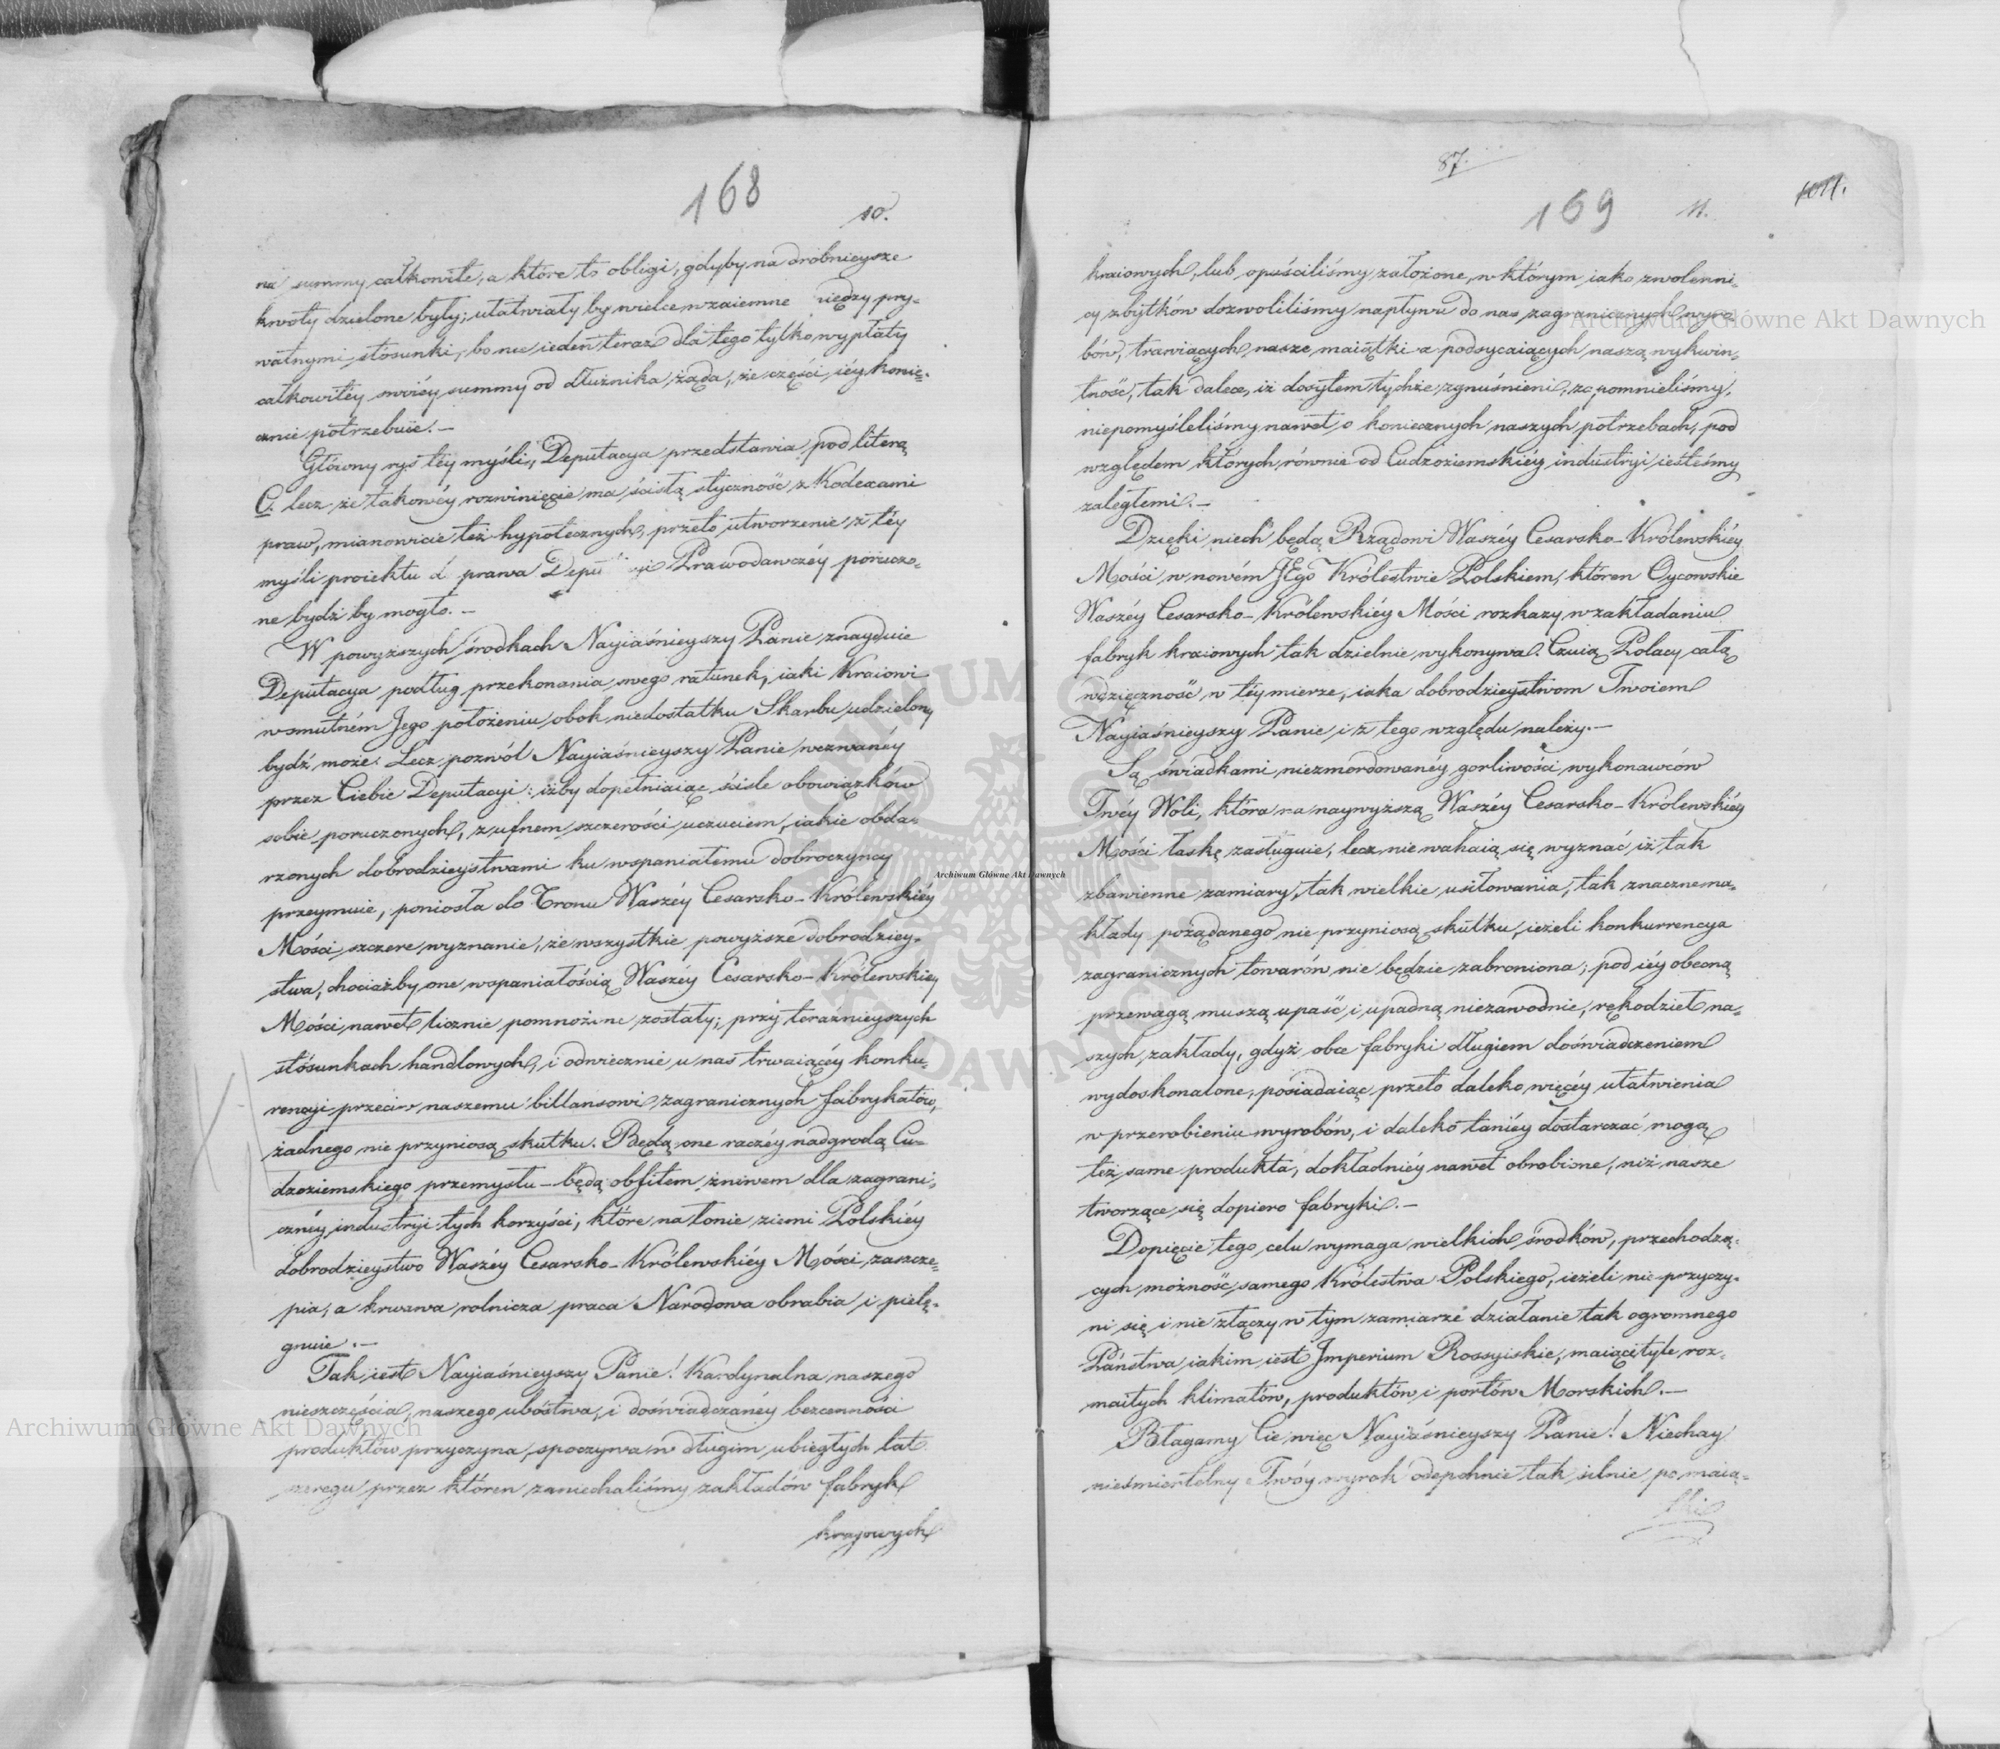 168
10.
na summy całkowite, a które to obligi, gdyby na drobnieysze
kwoty dzielone były; ułatwiały by wielce wzaiemne iędzy pry-
watnymi stósunki, bo nie ieden teraz dla tego tylko wypłaty
całkowitéy swoiéy summy od dłużnika żąda, że części iéy konie-
cznie potrzebuie. —
Główny rys téy myśli, Deputacya przedstawia pod literą
C. lecz że takowéy rozwinięcie ma ścisłą styczność z Kodexami
praw, mianowicie też hypotecznych, przeto utworzenie z téy
myśli proiektu d prawa Depu yi Prawodawczéy poruczo-
ne bydź by mogło. —
W powyższych środkach Nayiaśnieyszy Panie znayduie
Deputacya podług przekonania swego ratunek, iaki Kraiowi
w smutném Jego położeniu obok niedostatku Skarbu udzielony
bydź może. Lecz pozwól Nayiaśnieyszy Panie wezwanéy
przez Ciebie Deputacyi: iżby dopełniaiąc ściśle obowiązków
sobie poruczonych, z ufnem szczerości uczuciem, iakie obda-
rzonych dobrodzieystwami ku wspaniałemu dobroczyncy
przeymuie, poniosła do Tronu Waszéy Cesarsko-Królewskiéy
Mości szczere wyznanie, że wszystkie powyższe dobrodziey-
stwa, chociażby one wspaniałością Waszéy Cesarsko-Królewskiey
Mości nawet licznie pomnożone zostały; przy teraźnieyszych
stósunkach handlowych, i odwiecznie u nas trwaiącéy konku-
rencyi przeciw naszemu billansowi zagranicznych fabrykatów,
żadnego nie przyniosą skutku. Będą one raczéy nadgrodą Cu-
dzoziemskiego przemysłu — będą obfitem żniwem dla zagrani-
cznéy industryi tych korzyści, które na łonie ziemi Polskiéy
dobrodzieystwo Waszéy Cesarsko-Królewskiéy Mości zaszcze-
pia, a krwawa rolnicza praca Narodowa obrabia i pielę-
gnuie. —
Tak iest Nayiaśnieyszy Panie! Kardynalna naszego
nieszczęścia, naszego ubóstwa, i doświadczanéy bezcenności
produktów przyczyna, spoczywa w długim ubiegłych lat
szeregu przez któren zaniechaliśmy zakładów fabryk
krajowych
87.
169
11.
kraiowych, lub opuściliśmy założone, w którym iako zwolenni-
cy zbytków dozwoliliśmy napływu do nas zagranicznych wyro
bów, trawiących nasze maiątki a podsycaiących naszą wykwin-
tność, tak dalece, iż dosytem tychże zgnuśnieni, zapomnieliśmy,
niepomyśleliśmy nawet o koniecznych naszych potrzebach, pod
względem których równie od Cudzoziemskiéy industryi iesteśmy
zaległemi. —
Dzięki niech będą Rządowi Waszéy Cesarsko-Królewskiéy
Mości w nowém JEgo Królestwie Polskiem, któren Oycowskie
Waszéy Cesarsko-Królewskiéy Mości rozkazy w zakładaniu
fabryk kraiowych tak dzielnie wykonywa. Czuią Polacy całą
wdzięczność w téy mierze, iaka dobrodzieystwom Twoiem
Nayiaśnieyszy Panie i z tego względu należy. —
Są świadkami niezmordowanéy gorliwości wykonawców
Twéy Woli, która na naywyższą Waszéy Cesarsko-Królewskiéy
Mości łaskę zasługuie, lecz nie wahaią się wyznać iż tak
zbawienne zamiary, tak wielkie usiłowania, tak znaczne na-
kłady pożądanego nie przyniosą skutku, ieżeli konkurrencya
zagranicznych towarów nie będzie zabroniona; pod iéy obecną
przewagą muszą upaść i upadną niezawodnie, rękodzieł na-
szych zakłady, gdyż obce fabryki długiem doświadczeniem
wydoskonalone, posiadaiąc przeto daleko więcéy ułatwienia
w przerobieniu wyrobów, i daleko taniéy dostarczać mogą
też same produkta, dokładniéy nawet obrobione, niż nasze
tworzące się dopiero fabryki. —
Dopięcie tego celu wymaga wielkich środków, przechodzą-
cych możność samego Królestwa Polskiego, ieżeli nie przyczy-
ni się i nie złączy w tym zamiarze działanie tak ogromnego
Państwa iakim iest Jmperium Rossyiskie, maiący tyle roz-
maitych klimatów, produktów i portów Morskich. —
Błagamy Cie więc Nayiaśnieyszy Panie! Niechay
nieśmiertelny Twóy wyrok odepchnie tak silnie po maią-
Archiwum Główne Akt Dawnych
Archiwum Główne Akt Dawnych
Archiwum Główne Akt Dawnych